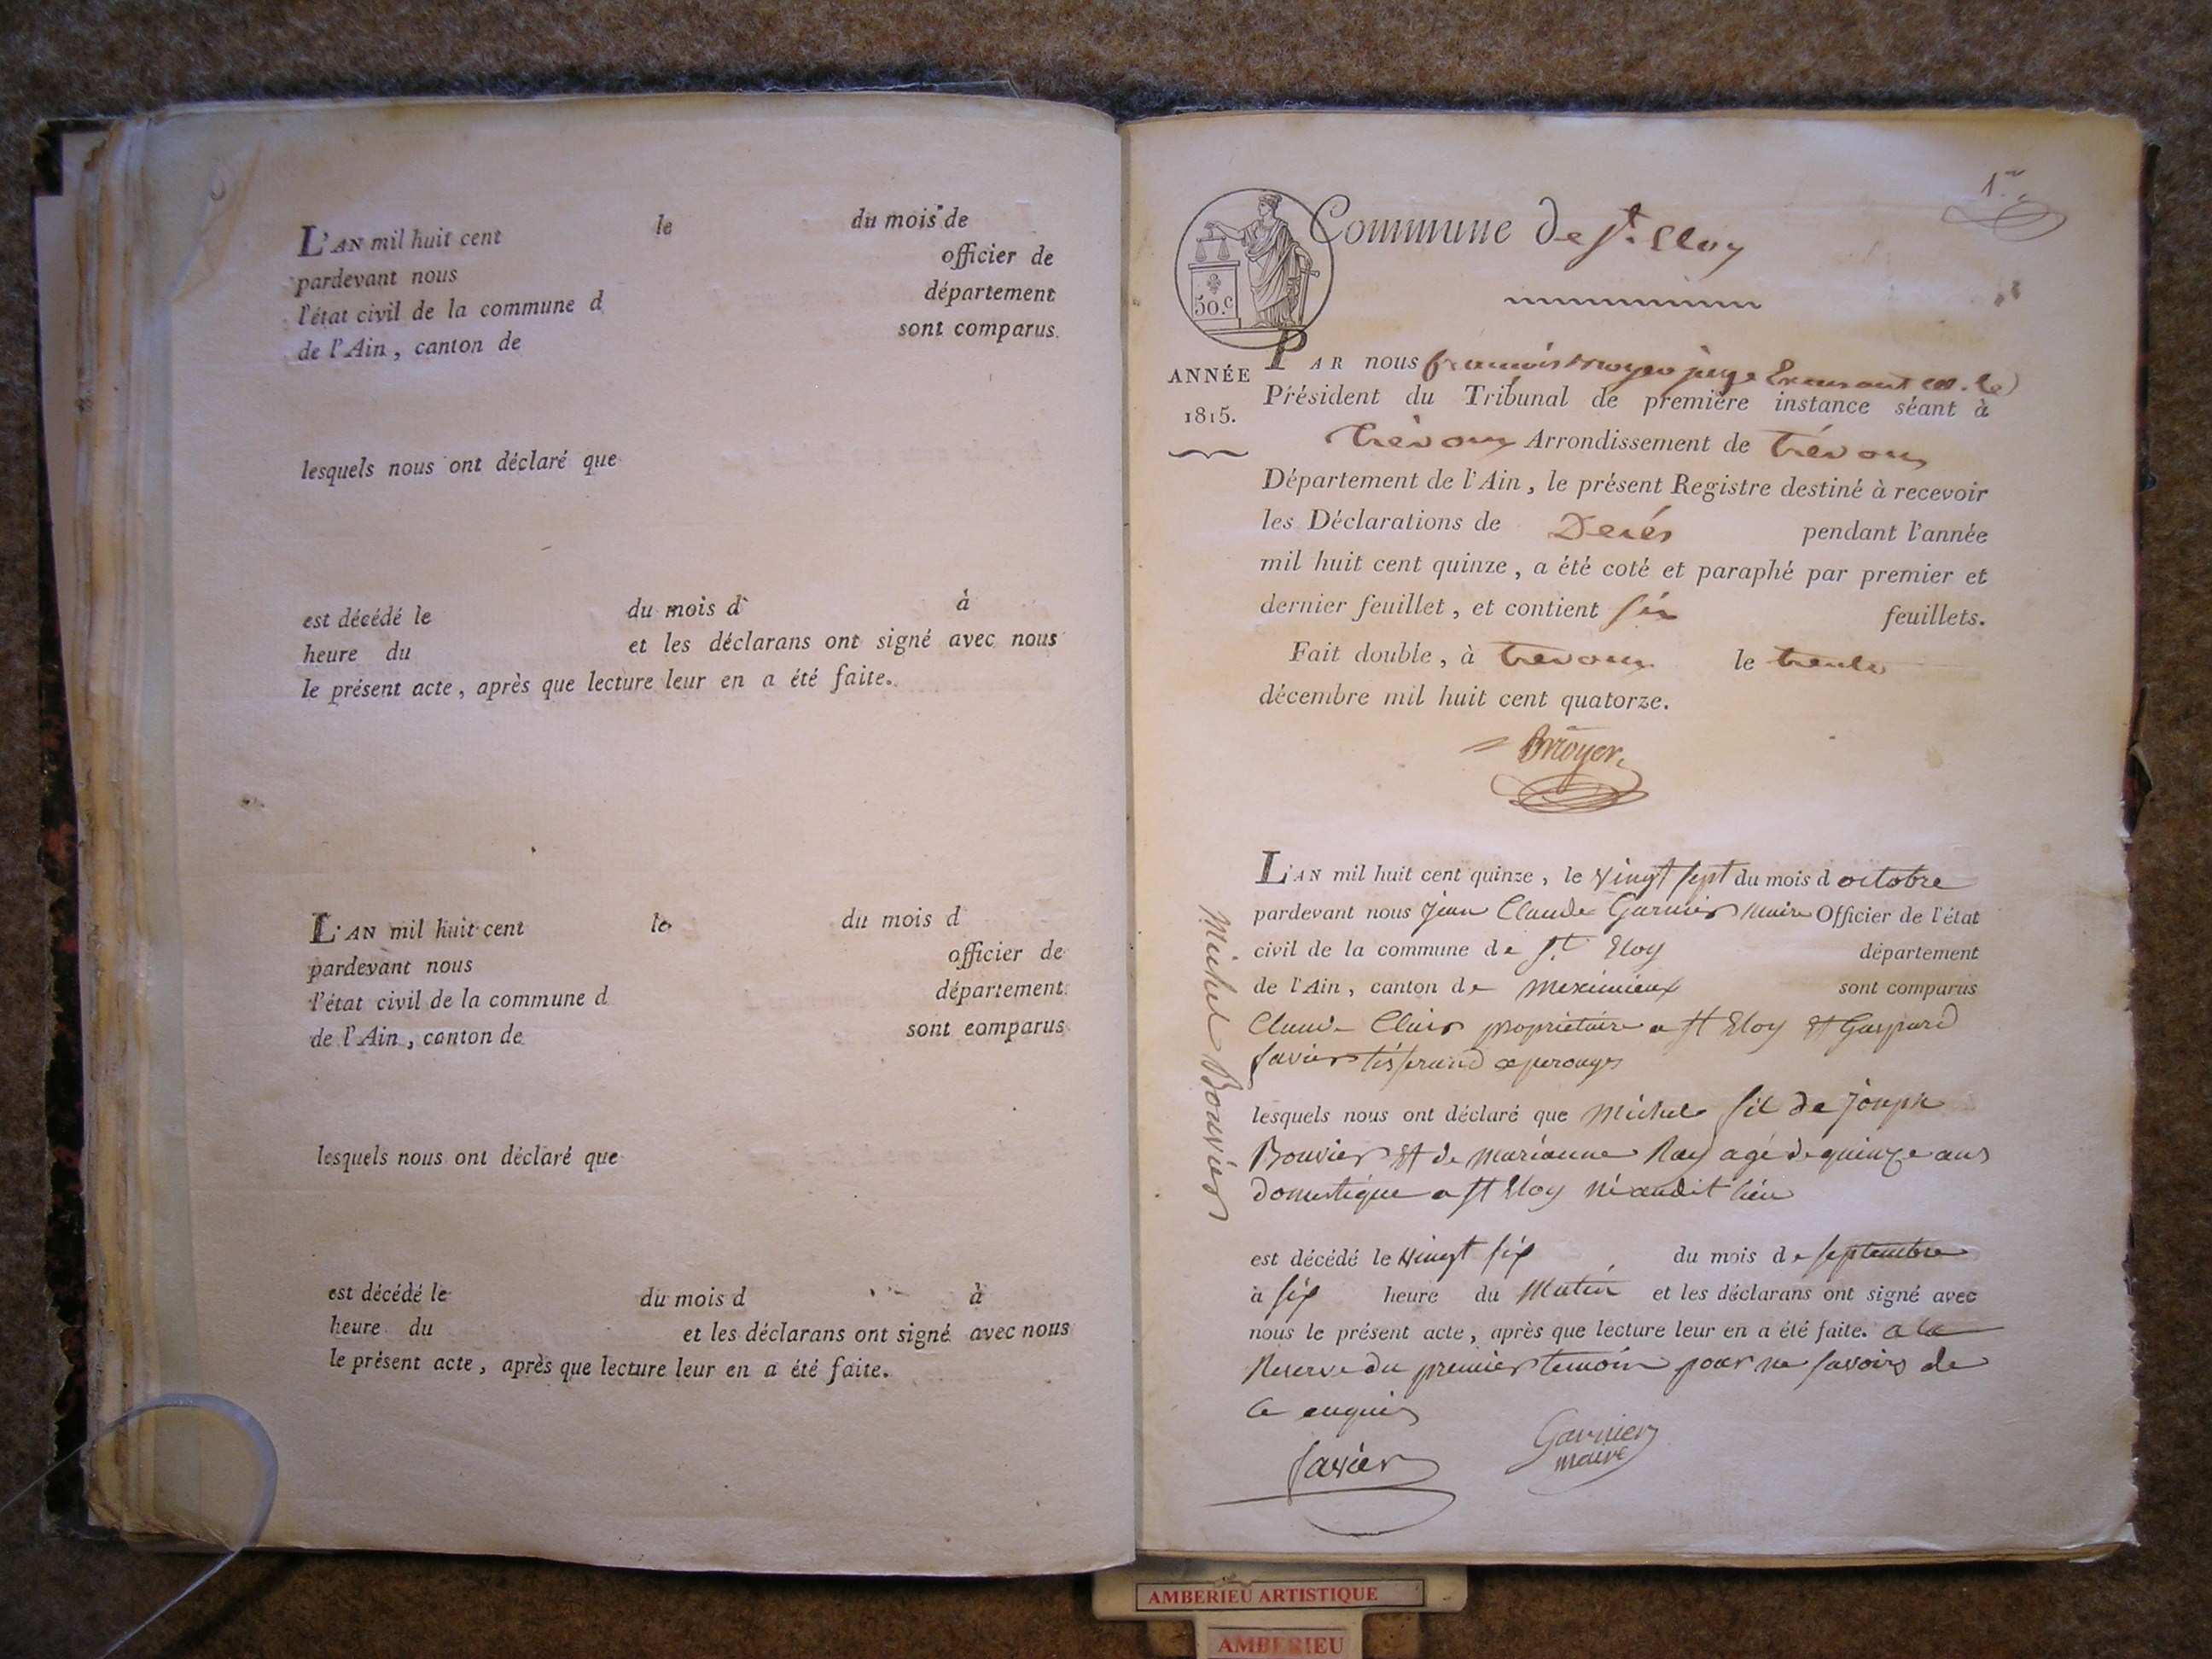 L'AN mil huit cent le du mois de
pardevant nous officier de
l'état civil de la commune d département
de l'Ain, canton de sont comparus
lesquels nous ont déclaré que
est décédé le du mois d à
heure du et les déclarans ont signé avec nous
le présent acte, après que lecture leur en a été faite.
L'AN mil huit cent le du mois d
pardevant nous officier de
l'état civil de la commune d département
de l'Ain, canton de sont comparus
lesquels nous ont déclaré que
est décédé le du mois d à
heure du et les déclarans ont signé avec nous
le présent acte, après que lecture leur en a été faite.
1er
Commune de St. Eloy
50.c
ANNÉE
1815.
PAR nous françois Broyer juge Exerçant en le
Président du Tribunal de première instance séant à
trévoux Arrondissement de trévoux
Département de l'Ain, le présent Registre destiné à recevoir
les Déclarations de Decés pendant l'année
mil huit cent quinze, a été coté et paraphé par premier et
dernier feuillet, et contient six feuillets.
Fait double, à trevoux le trente
décembre mil huit cent quatorze.
Broyer
Michel Bouvier
L'AN mil huit cent quinze, le vingt sept du mois d octobre
pardevant nous Jean Claude Garnier maire Officier de l'état
civil de la commune de St. Eloy département
de l'Ain, canton de meximieux sont comparus
Claude Clair propriétaire a St Eloy Et Gaspard
Savier tisserand a perouges
lesquels nous ont déclaré que Michel fil de Joseph
Bouvier Et de marianne Ray agé de quinze ans
domestique a St Eloy né audit lieu
est décédé le vingt six du mois de septembre
à six heure du Matin et les déclarans ont signé avec
nous le présent acte, après que lecture leur en a été faite. a la
Reserve du premier temoin pour ne savoir de
ce enquis
Savier
Garnier
maire
AMBERIEU ARTISTIQUE
AMBERIEU